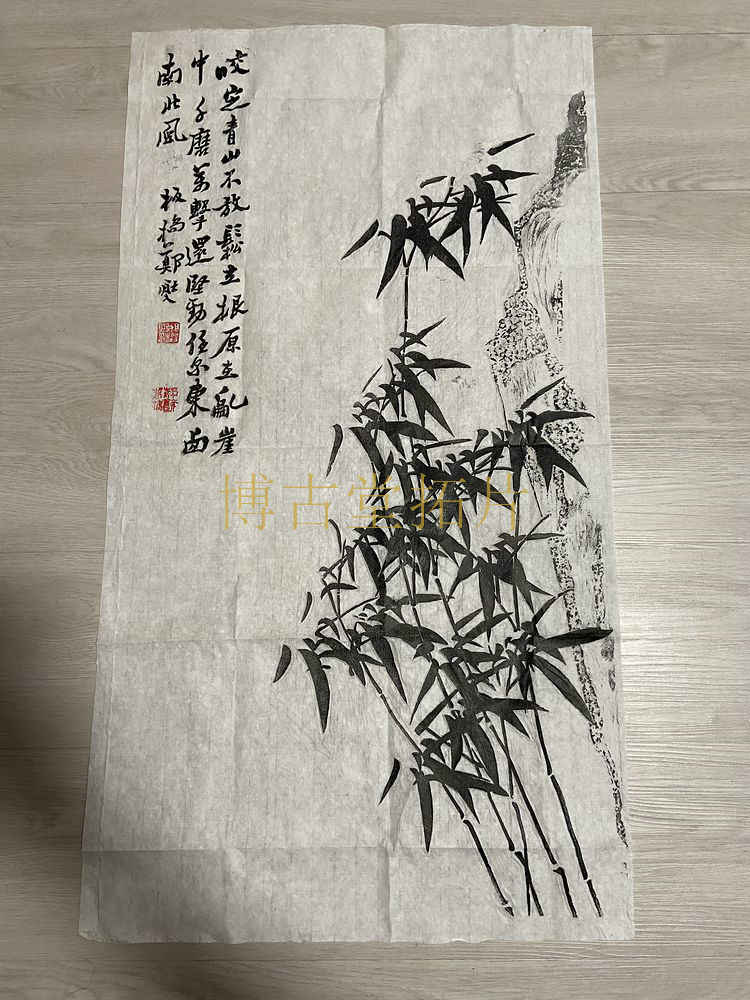 咬定青山不放鬆立根原在亂崖
中千磨萬擊還堅勁任尔東西
南北風 板橋鄭燮
博古堂拓片